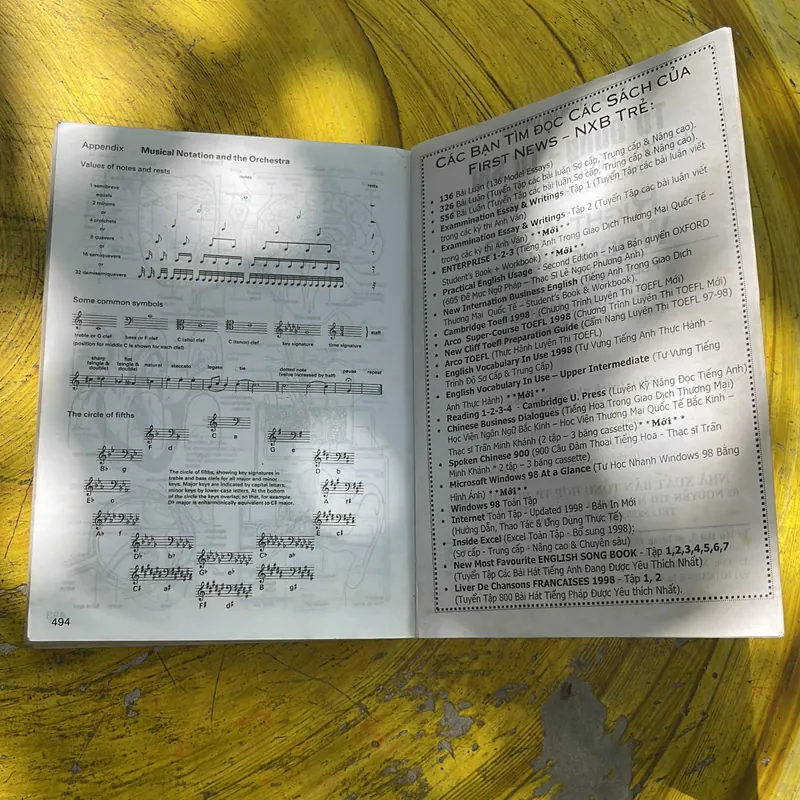 Appendix Musical Notation and the Orchestra
Values of notes and rests
notes
rests
1 semibreve
equals
2 minims
or
4 crotchets
or
8 quavers
or
16 semiquavers
or
32 demisemiquavers
Some common symbols
staff
treble or G clef
bass or F clef
C (alto) clef
C (tenor) clef
key signature
time signature
(position for middle C is shown for each clef)
sharp
(single &
double)
flat
(single &
double)
natural
staccato
legato
tie
dotted note
(value increased by half)
pause
repeat
The circle of fifths
C a
F d
G e
B♭ g
D b
E♭ c
A f♯
A♭ f
E c♯
D♭ b♭
C♭ a♭
G♭ e♭
C♯ a♯
B g♯
F♯ d♯
The circle of fifths, showing key signatures in
treble and bass clefs for all major and minor
keys. Major keys are indicated by capital letters;
minor keys by lower-case letters. At the bottom
of the circle the keys overlap, so that, for example,
D♭ major is enharmonically equivalent to C♯ major.
494
CÁC BẠN TÌM ĐỌC CÁC SÁCH CỦA
FIRST NEWS – NXB TRẺ:
• 136 Bài Luận (136 Model Essays)
• 326 Bài Luận (Tuyển Tập các bài luận Sơ cấp, Trung cấp & Nâng cao).
• 556 Bài Luận (Tuyển Tập các bài luận Sơ cấp, Trung cấp & Nâng cao).
• Exammination Essay & Writings -Tập 1 (Tuyển Tập các bài luận viết
trong các kỳ thi Anh Văn)
• Exammination Essay & Writings -Tập 2 (Tuyển Tập các bài luận viết
trong các kỳ thi Anh Văn) **Mới**
• ENTERPRISE 1-2-3 (Tiếng Anh Trong Giao Dịch Thương Mại Quốc Tế –
Student's Book + Workbook) **Mới**
• Practical English Usage - Second Edition – Mua Bản quyền OXFORD
(605 Đề Mục Ngữ Pháp – Thạc Sĩ Lê Ngọc Phương Anh)
• New Internation Business English (Tiếng Anh Trong Giao Dịch
Thương Mại Quốc Tế – Student's Book & Workbook)
• Cambridge Toefl 1998 - (Chương Trình Luyện Thi TOEFL Mới)
• Arco Super-Course TOEFL 1998 (Chương Trình Luyện Thi TOEFL 97-98)
• New Cliff Toefl Preparation Guide (Cẩm Nang Luyện Thi TOEFL)
• Arco TOEFL (Thực Hành Luyện Thi TOEFL)
• English Vocabulary In Use 1998 (Từ Vựng Tiếng Anh Thực Hành -
Trình Độ Sơ Cấp & Trung Cấp)
• English Vocabulary In Use – Upper Intermediate (Từ Vựng Tiếng
Anh Thực Hành) **Mới**
• Reading 1-2-3-4 - Cambridge U. Press (Luyện Kỹ Năng Đọc Tiếng Anh)
• Chinese Business Dialogues (Tiếng Hoa Trong Giao Dịch Thương Mại) –
Học Viện Ngôn Ngữ Bắc Kinh – Học Viện Thương Mại Quốc Tế Bắc Kinh –
Thạc sĩ Trần Minh Khánh (2 tập – 3 băng cassette) **Mới**
• Spoken Chinese 900 (900 Câu Đàm Thoại Tiếng Hoa - Thạc sĩ Trần
Minh Khánh * 2 tập – 3 băng cassette)
• Microsoft Windows 98 At a Glance (Tự Học Nhanh Windows 98 Bằng
Hình Ảnh) **Mới**
• Windows 98 Toàn Tập
• Internet Toàn Tập - Updated 1998 - Bản In Mới
(Hướng Dẫn, Thao Tác & Ứng Dụng Thực Tế)
• Inside Excel (Excel Toàn Tập - Bổ sung 1998):
(Sơ cấp - Trung cấp - Nâng cao & Chuyên sâu)
• New Most Favourite ENGLISH SONG BOOK - Tập 1,2,3,4,5,6,7
(Tuyển Tập Các Bài Hát Tiếng Anh Đang Được Yêu Thích Nhất)
• Liver De Chansons FRANCAISES 1998 - Tập 1, 2
(Tuyển Tập 800 Bài Hát Tiếng Pháp Được Yêu thích Nhất).